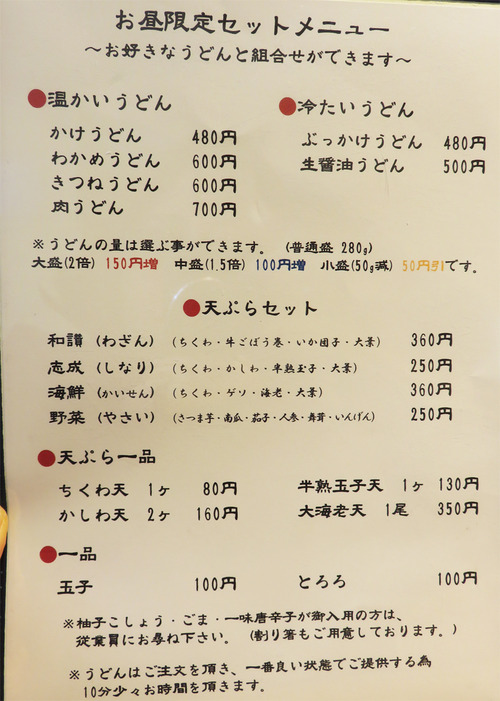 お昼限定セットメニュー
～お好きなうどんと組合せができます～
●温かいうどん
かけうどん 480円
わかめうどん 600円
きつねうどん 600円
肉うどん 700円
●冷たいうどん
ぶっかけうどん 480円
生醤油うどん 500円
※うどんの量は選ぶ事ができます。(普通盛 280g)
大盛(2倍) 150円増 中盛(1.5倍) 100円増 小盛(50g減) 50円引です。
●天ぷらセット
和讃(わざん) (ちくわ・牛ごぼう巻・いか団子・大葉) 360円
志成(しなり) (ちくわ・かしわ・半熟玉子・大葉) 250円
海鮮(かいせん) (ちくわ・ゲソ・海老・大葉) 360円
野菜(やさい) (さつま芋・南瓜・茄子・人参・舞茸・いんげん) 250円
●天ぷら一品
ちくわ天 1ヶ 80円
かしわ天 2ヶ 160円
半熟玉子天 1ヶ 130円
大海老天 1尾 350円
●一品
玉子 100円
とろろ 100円
※柚子こしょう・ごま・一味唐辛子が御入用の方は、
従業員にお尋ね下さい。(割り箸もご用意しております。)
※うどんはご注文を頂き、一番良い状態でご提供する為
10分少々お時間を頂きます。